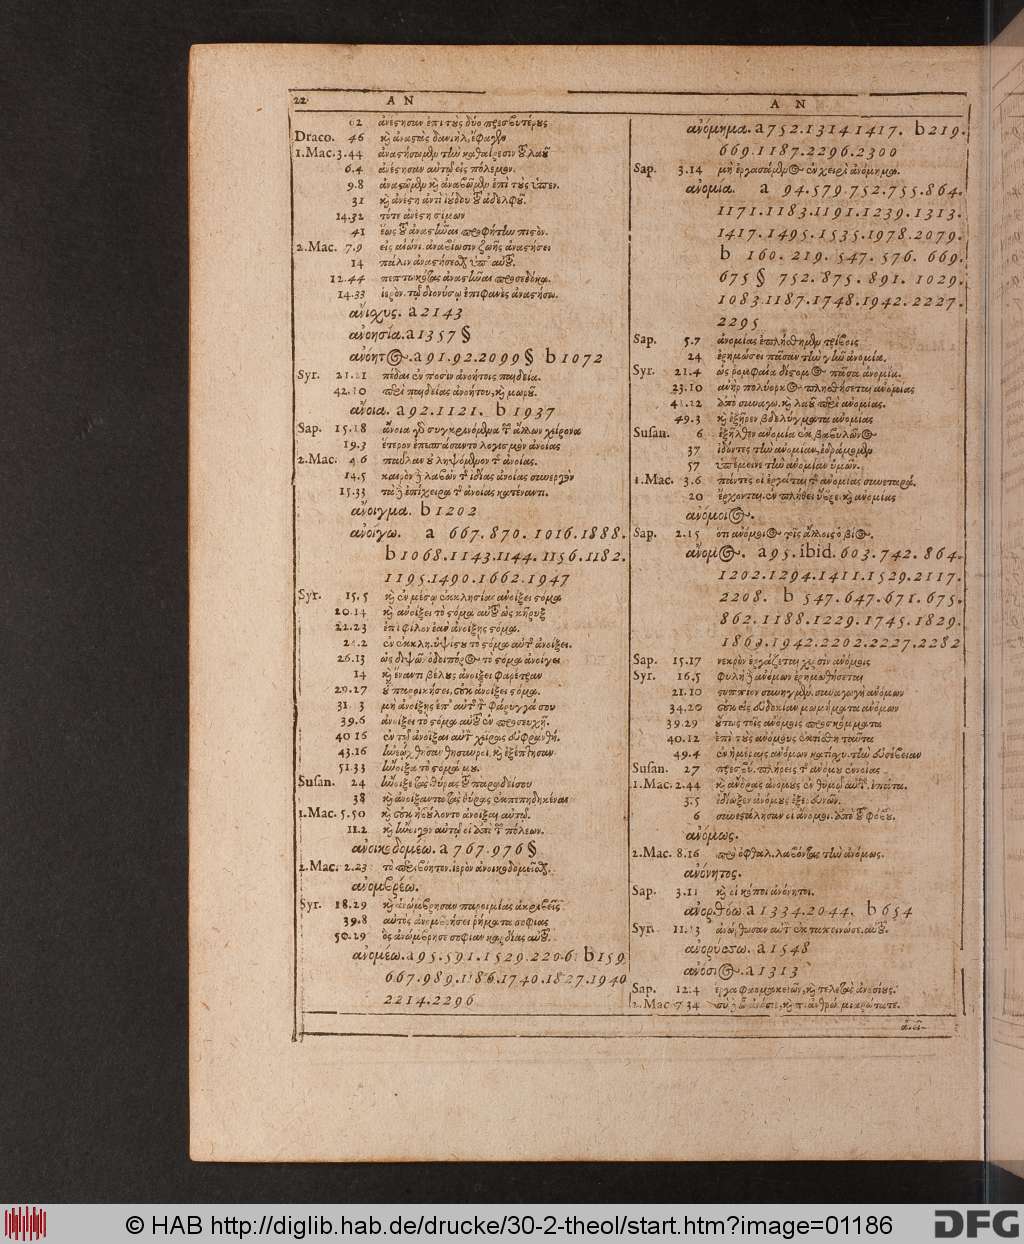 22 A N
62 ἀνέστησαν ἐπὶ τοὺς δύο πρεσβυτέρους
Draco. 46 καὶ ἀναστὰς δανιὴλ, ἔφαγε
1.Mac. 3.44
6.4 ἀνέστησαν αὐτῷ εἰς πόλεμον.
9.8 ἀναστῶμεν καὶ ἀναβῶμεν ἐπὶ τοὺς ὑπεν.
31 καὶ ἀνέστη ἀντὶ ἰούδου τοῦ ἀδελφοῦ.
14.32 τότε ἀνέστη σίμων
41 ἕως τοῦ ἀναστῆναι προφήτην πιστόν.
2.Mac. 7.9 εἰς αἰώνι. ἀναβίωσιν ζωῆς ἀναστήσει
14 πάλιν ἀναστήσεσθαι ὑπ' αὐτοῦ.
12.44 πεπτωκότας ἀναστῆναι προσεδόκα.
14.33 ἱερὸν τῷ διονύσῳ ἐπιφανὲς ἀναστήσω.
ἄνισχυς. a 2143
ἀνοησία. a 1357 §
ἀνόητος. a 91.92.2099 § b 1072
Syr. 21.21 πέδαι ἐν ποσὶν ἀνοήτοις παιδεία.
42.10 περὶ παιδείας ἀνοήτου, καὶ μωροῦ.
ἄνοια. a 92.1121. b 1937
Sap. 15.18 ἄνοια γὰρ συγκρινόμενα τῶν ἄλλων χείρονα
19.3 ἕτερον ἐπεσπάσαντο λογισμὸν ἀνοίας
2.Mac. 4.6 παῦλαν οὐ ληψόμενον τῆς ἀνοίας.
14.5 καιρὸν λαβὼν τῆς ἰδίας ἀνοίας συνεργὸν
15.33 τὰ ἐπίχειρα τῆς ἀνοίας κατέναντι.
ἄνοιγμα. b 1202
ἀνοίγω. a 667.870.1016.1888.
b 1068.1143.1144.1156.1182.
1195.1490.1662.1947
Syr. 15.5 καὶ ἐν μέσῳ ἐκκλησίας ἀνοίξει στόμα
20.14 καὶ ἀνοίξει τὸ στόμα αὐτοῦ ὡς κῆρυξ
22.23 ἐπὶ φίλον ἐὰν ἀνοίξῃς στόμα.
24.2 ἐν ἐκκλη. ὑψίστου τὸ στόμα αὐτῆς ἀνοίξει.
26.13 ὡς διψῶν ὁδοιπόρος τὸ στόμα ἀνοίγει
14 καὶ ἔναντι βέλους ἀνοίξει φαρέτραν
29.27 οὐ παροικήσει, οὐκ ἀνοίξει στόμα.
31 3 μὴ ἀνοίξῃς ἐπ' αὐτῆς φάρυγγά σου
39.6 ἀνοίξει τὸ στόμα αὐτοῦ ἐν προσευχῇ.
40 16 ἐν τῷ ἀνοῖξαι αὐτὸν χεῖρας εὐφρανθή.
43.16 ἠνεῴχθησαν θησαυροὶ, καὶ ἐξέπτησαν
51.33 ἤνοιξα τὸ στόμά μου.
Susan. 24 ἤνοιξε τὰς θύρας τοῦ παραδείσου
38 καὶ ἀνοίξαντα τὰς θύρας ἐκπεπηδηκέναι
1.Mac. 5.50 καὶ οὐκ ἠβούλοντο ἀνοῖξαι αὐτῷ.
11.2 καὶ ἤνοιγον αὐτῷ οἱ ἀπὸ τῶν πόλεων.
ἀνοικοδομέω. a 767.976 §
2.Mac. 2.23 τὸ περιβόητον. ἱερὸν ἀνοικοδομεῖσθαι.
ἀνομβρέω.
Syr. 18.29 καὶ ἀνώμβρησαν παροιμίας ἀκριβεῖς
39.8 αὐτὸς ἀνομβρήσει ῥήματα σοφίας
50.29 ὃς ἀνώμβρησε σοφίαν καρδίας αὐτοῦ.
ἀνομέω. a 95.591.1529.2206. b 159
667.989.1186.1740.1827.1940
2214.2296
A N
ἀνόμημα. a 752.1314.1417. b 219.
669.1187.2296.2300
Sap. 3.14 μὴ ἐργασάμενος ἐν χειρὶ ἀνόμημα.
ἀνομία. a 94.579.752.755.864.
1171.1183.1191.1239.1313.
1417.1495.1535.1978.2079.
b 160.219.547.576.669.
675 § 752.875.891.1029.
1083.1187.1748.1942.2227.
2295
Sap. 5.7 ἀνομίας ἐπλήσθημεν τρίβοις
24 ἐρημώσει πᾶσαν τὴν γῆν ἀνομία.
Syr. 21.4 ὡς ῥομφαία δίστομος πᾶσα ἀνομία.
23.10 ἀνὴρ πολύορκος πλησθήσεται ἀνομίας
41.12 ἀπὸ συναγω. καὶ λαοῦ περὶ ἀνομίας.
49.3 καὶ ἐξῇρεν βδελύγματα ἀνομίας
Susan. 6 ἐξῆλθεν ἀνομία ἐκ βαβυλῶνος
37 ἰδόντες τὴν ἀνομίαν, ἐδράμομεν
57 ὑπέμεινε τὴν ἀνομίαν ὑμῶν.
1.Mac. 3.6 πάντες οἱ ἐργάται τῆς ἀνομίας συνεταρά.
20 ἔρχονται ἐν πλήθει ὕβρε. καὶ ἀνομίας
ἀνόμοιος.
Sap. 2.15 ὅτι ἀνόμοιος τοῖς ἄλλοις ὁ βίος.
ἄνομος. a 95.ibid.603.742.864.
1202.1294.1411.1529.2117.
2208. b 547.647.671.675.
862.1188.1229.1745.1829.
1869.1942.2202.2227.2282
Sap. 15.17 νεκρὸν ἐργάζεται χερσὶν ἀνόμοις
Syr. 16.5 φυλὴ ἀνόμων ἐρημωθήσεται
21.10 συναγωγὴ ἀνόμων
34.20 οὐκ εἰς εὐδοκίαν μωμήματα ἀνόμων
39.29 οὕτως τοῖς ἀνόμοις προσκόμματα
40.12 ἐπὶ τοὺς ἀνόμους ἐκτίσθη ταῦτα
49.4 ἐν ἡμέραις ἀνόμων κατίσχυ. τὴν εὐσέβειαν
Susan. 27
1.Mac. 2.44 καὶ ἄνδρας ἀνόμους ἐν θυμῷ αὐτῶν. ἐπάτα.
3.5 ἐδίωξεν ἀνόμους ἐξερευνῶν.
6 συνεστάλησαν οἱ ἄνομοι. ἀπὸ τοῦ φόβου.
ἀνόμως.
2.Mac. 8.16 λαβόντας τὴν ἀνόμως.
ἀνόνητος.
Sap. 3.11 καὶ οἱ κόποι ἀνόνητοι.
ἀνορθόω. a 1334.2044. b 654
Syr. 11.13 ἀνώρθωσαν αὐτὸν ἐκ ταπεινώσε. αὐτοῦ.
ἀνορύσσω. a 1548
ἀνόσιος. a 1313
Sap. 12.4 ἔργα φαρμακειῶν, καὶ τελετὰς ἀνοσίους.
2.Mac 7.34 σὺ ὦ ἀνόσιε, καὶ π. ἀνθρώ. μιαρώτατε.
© HAB http://diglib.hab.de/drucke/30-2-theol/start.htm?image=01186
DFG